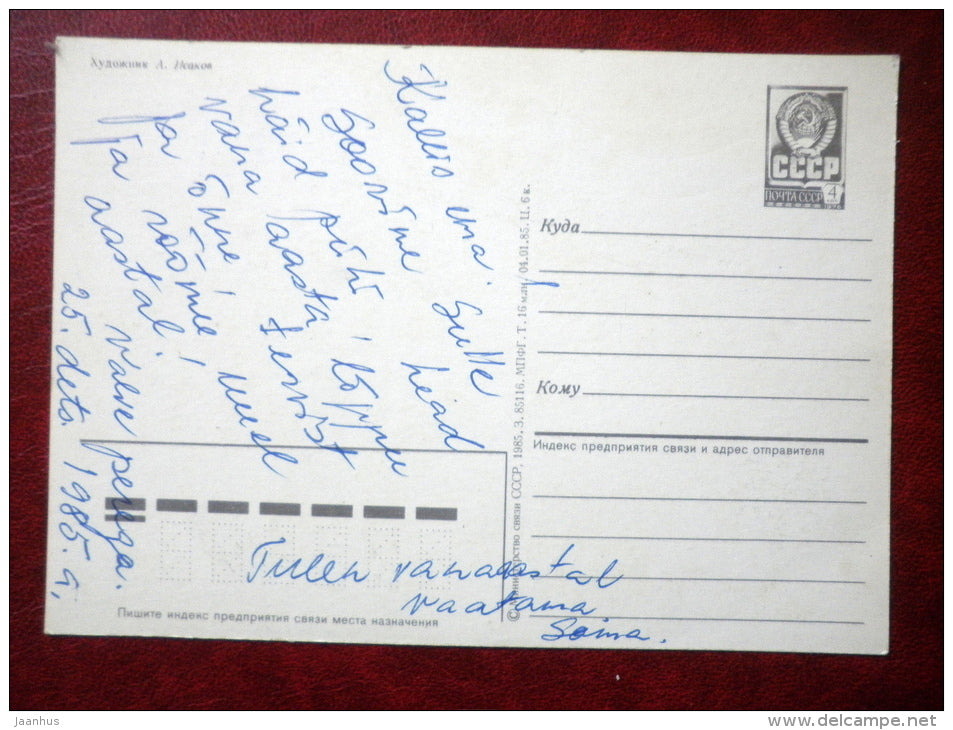 Художник А. Исаков
Kallis ema. Sulle
soovime head
häid pühi! lõppu
vana aasta tervist
õnne!
ja rõõmu! uuel
ja aastal.
Valve perega.
25. dets. 1985. a.
Tulen vanaaastal
vaatama
Soima.
СССР
ПОЧТА СССР 4
Куда
Кому
Индекс предприятия связи и адрес отправителя
© Министерство связи СССР, 1985. З. 85116. МПФГ. Т. 16 млн. 04.01.85. Ц. 6 к.
Пишите индекс предприятия связи места назначения
Jaanhus
delcampe.net